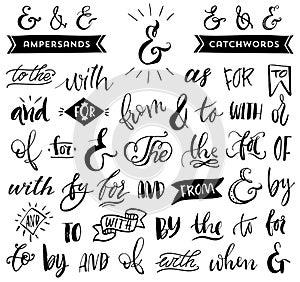 & & & & & & &
AMPERSANDS CATCHWORDS
to the with as FOR TO
and FOR from & to WITH or
of for & The the for OF
with by for AND FROM & by
AND TO WITH BY the to for
to by AND OF with when &